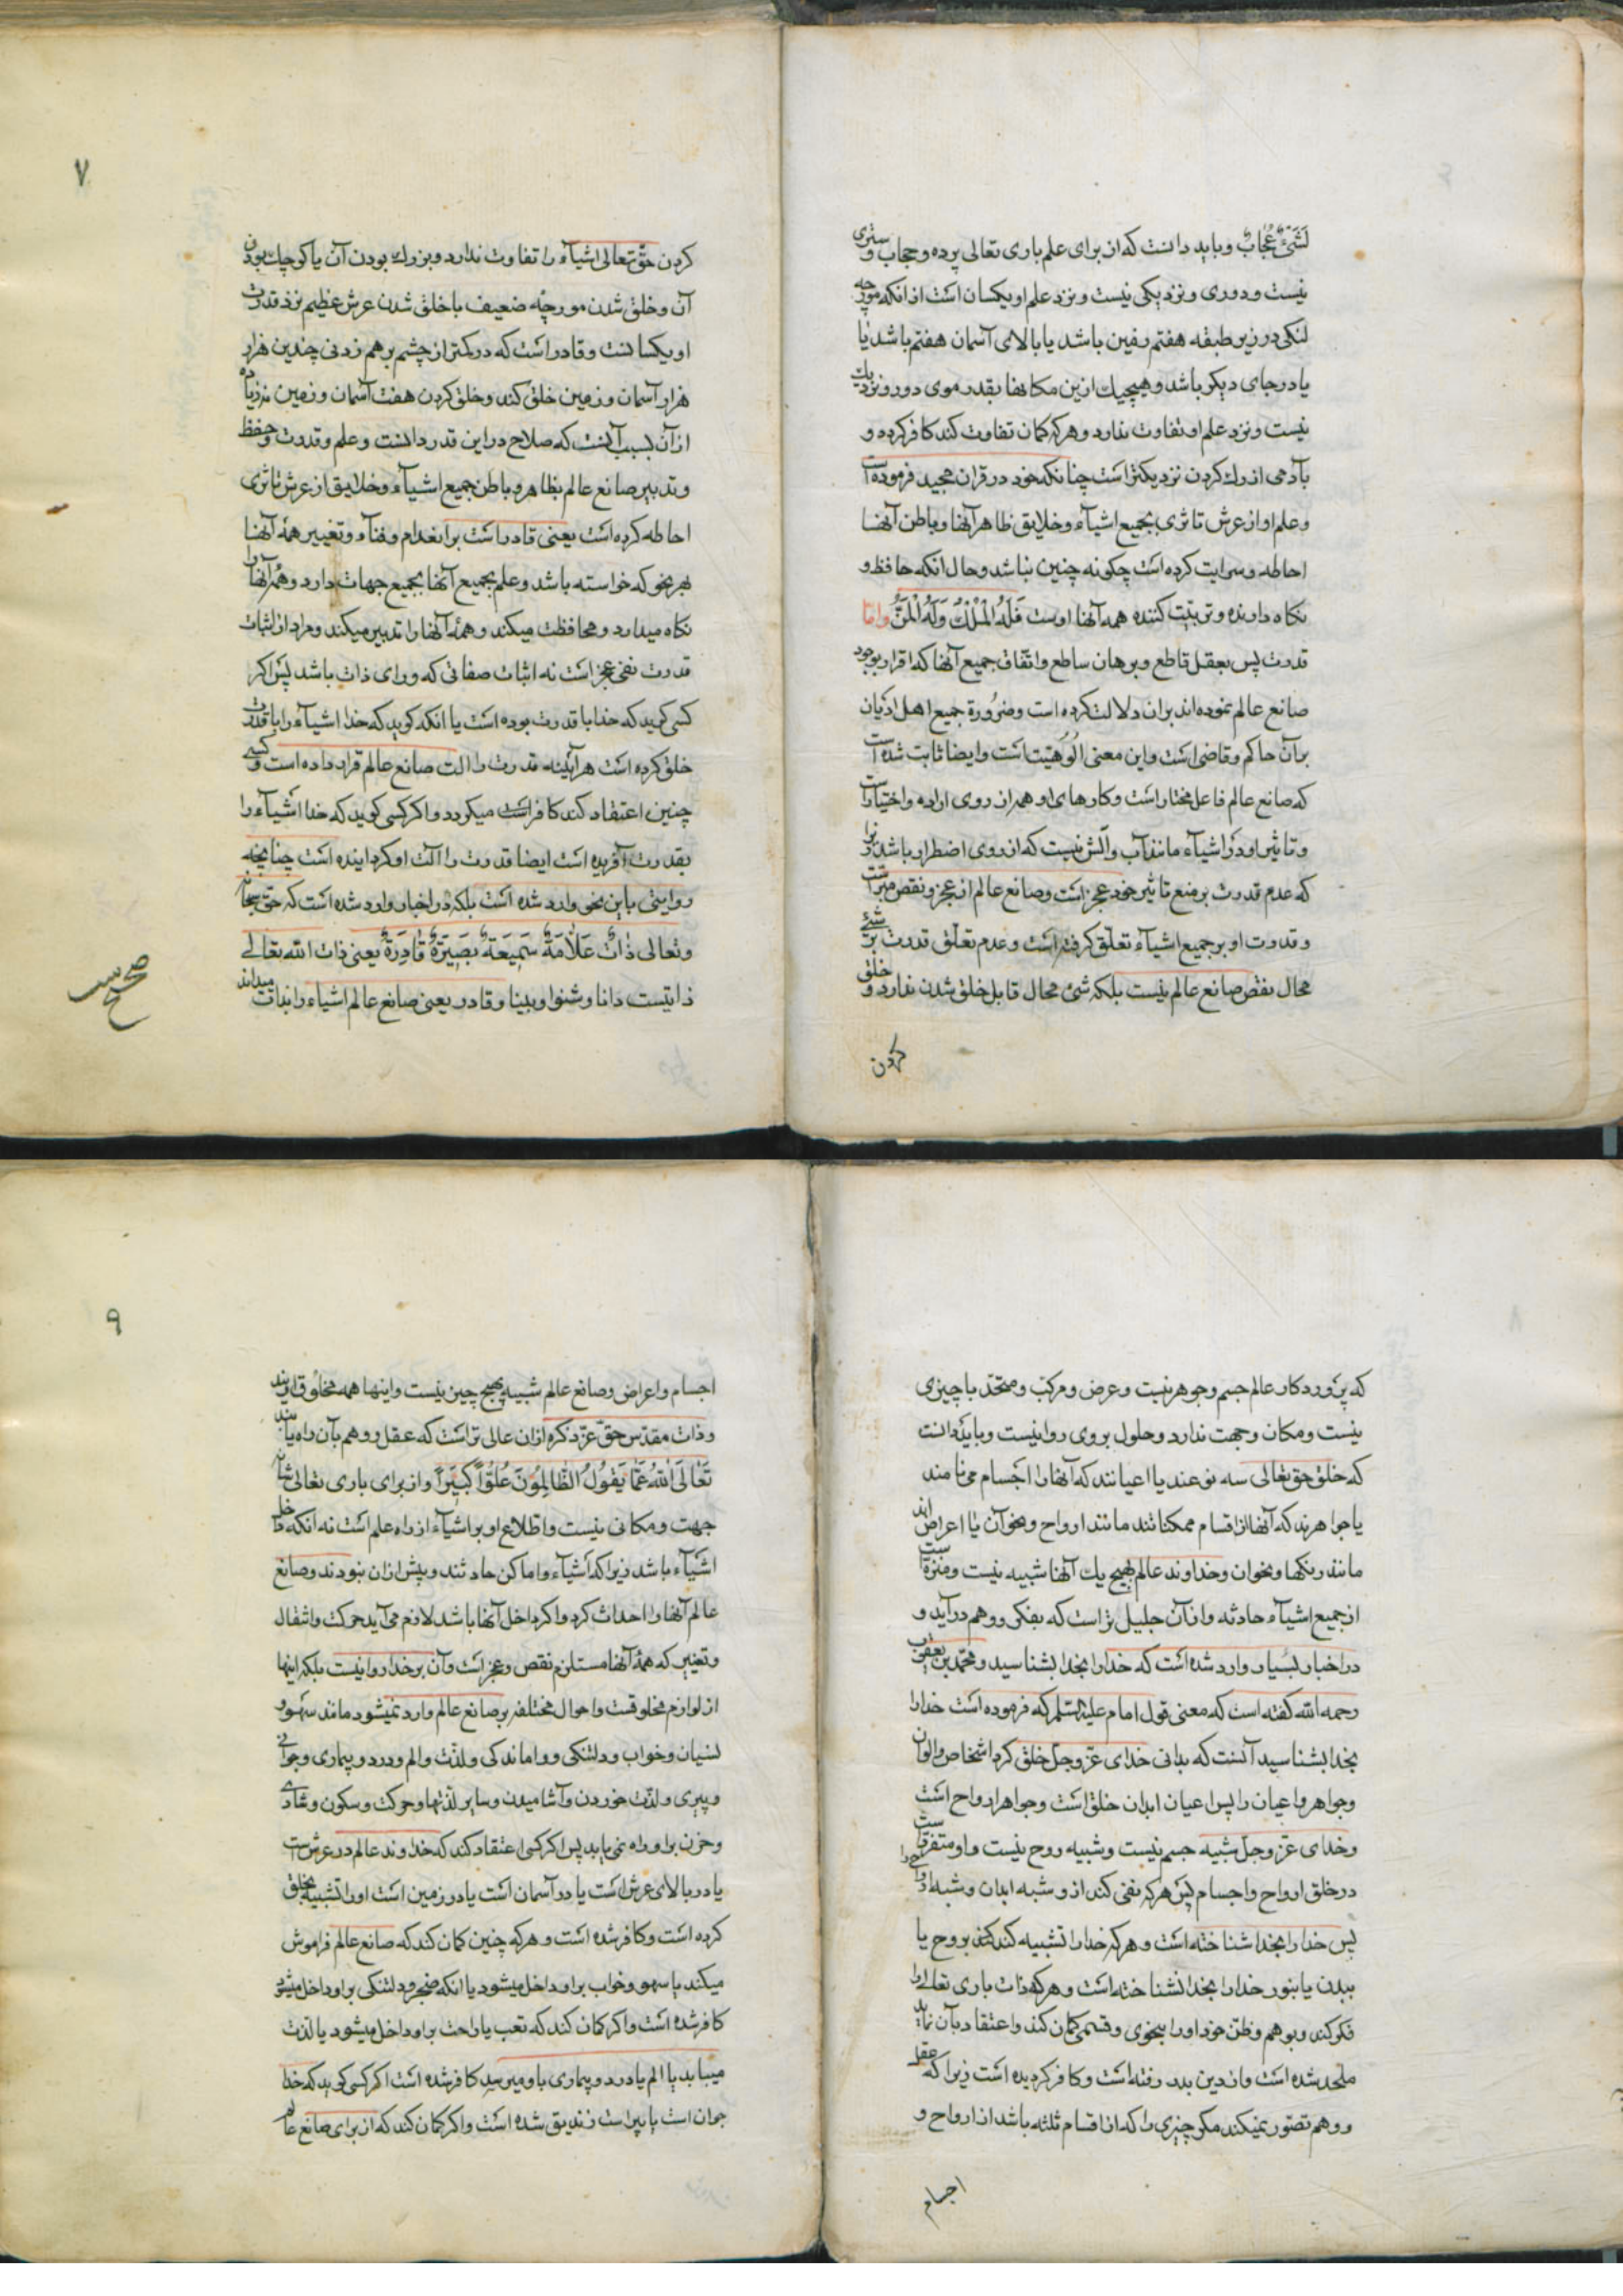 لَشَیْءٌ عُجَابٌ و باید دانست که از برای علم باری تعالی پرده و حجاب و ستری
نیست و دوری و نزدیکی نیست و نزد علم او یکسان است از آنکه مورچه
لنکی در زیر طبقه هفتم زمین باشد یا بالای آسمان هفتم باشد یا
یا در جای دیکر باشد و هیچیك ازین مکانها بقدر موی دور و نزدیك
نیست و نزد علم او تفاوت ندارد و هر که کمان تفاوت کند کافر کردد و
بآدمی از رك کردن نزدیکتر است چنانکه خود در قران مجید فرموده است
و علم او از عرش تا ثری بجمیع اشیآء و خلایق ظاهر آنها و باطن آنها
احاطه و سرایت کرده است چکونه چنین نباشد و حال آنکه حافظ و
نکاه دارنده و تربیت کننده همه آنها اوست فَلَهُ الْمُلْكُ وَلَهُ الْمَنُّ و امّا
قدرت پس بعقل قاطع و برهان ساطع و اتّفاق جمیع آنها که اقرار بوجود
صانع عالم نموده اند بران دلالت کرده است و ضرورة جمیع اهل ادیان
بر آن حاکم و قاضی است و این معنی الُوهیّت است و ایضا ثابت شده است
که صانع عالم فاعل مختار است و کارهای او همه از روی اراده و اختیار است
و تاثیر او در اشیآء مانند آب و آتش نیست که از روی اضطرار باشد زیرا
که عدم قدرت بر منع تاثیر خود عجز است و صانع عالم از عجز و نقص مبرّاست
و قدرت او بر جمیع اشیآء تعلّق کرفته است و عدم تعلّق قدرت بر شیء
محال نقص صانع عالم نیست بلکه شیء محال قابل خلق شدن ندارد و خلق
کردن
۷
کردن حقّ تعالی اشیآء را تفاوت ندارد و بزرك بودن آن یا کوچك بودن
آن و خلق شدن مورچه ضعیف با خلق شدن عرش عظیم نزد قدرت
او یکسانست و قادر است که در کمتر از چشم بر هم زدنی چندین هزار
هزار آسمان و زمین خلق کند و خلق کردن هفت آسمان و زمین نه زیاده
از آن بسبب آنست که صلاح در این قدر دانست و علم و قدرت و حفظ
و تدبیر صانع عالم بظاهر و باطن جمیع اشیآء و خلایق از عرش تا ثری
احاطه کرده است یعنی قادر است بر انعدام و فنآء و تغییر همه آنها
بهر نحو که خواسته باشد و علم بجمیع آنها بجمیع جهات دارد و همه آنها را
نکاه میدارد و محافظت میکند و همه آنها را تدبیر میکند و مراد از اثبات
قدرت نفی عجز است نه اثبات صفاتی که ورای ذات باشد پس اکر
کسی کوید که خدا با قدرت بوده است یا انکه کوید که خدا اشیآء را با قدرت
خلق کرده است هرآینه قدرت را الت صانع عالم قرار داده است و کسی
چنین اعتقاد کند کافر است میکردد و اکر کسی کوید که خدا اشیآء را
بقدرت آفریده است ایضا قدرت را آلت او کردانیده است چنانچه
روایتی باین نحو وارد شده است بلکه در اخبار وارد شده است که حق سبحانه
و تعالی ذَاتٌ عَلَّامَةٌ سَمِیعَةٌ بَصِیرَةٌ قَادِرَةٌ یعنی ذات اللّه تعالی
ذاتیست دانا و شنوا و بینا و قادر یعنی صانع عالم اشیاء را بذات میداند
که پروردکار عالم جسم و جوهر نیست و عرض و مرکب و متحد با چیزی
نیست و مکان و جهت ندارد و حلول بر وی روا نیست و باید دانست
که خلق حق تعالی سه نوعند یا اعیانند که آنها را اجسام می نامند
یا جواهرند که آنها از اقسام ممکناتند مانند ارواح و نحو آن یا اعراض اند
مانند رنکها و نحو ان و خداوند عالم بهیچ یك آنها شبیه نیست و منزه است
از جمیع اشیآء حادثه و از آن جلیل تر است که بفکر و وهم در آید و
در اخبار بسیار وارد شده است که خدا را بخدا بشناسید و محمّد بن یعقوب
رحمه اللّه کفته است که معنی قول امام علیه السّلم که فرموده است خدا را
بخدا بشناسید آنست که بدانی خدای عزّ وجلّ خلق کرد اشخاص و الوان
و جواهر و اعیان را پس اعیان ابدان خلق است و جواهر ارواح است
و خدای عزّ وجلّ شبیه جسم نیست و شبیه روح نیست و او متفرّد است
در خلق ارواح و اجسام پس هر که نفی کند از و شبه ابدان و شبه ارواح را
پس خدا را بخدا شناخته است و هر که خدا را تشبیه کند کند بروح یا
ببدن یا بنور خدا را بخدا نشناخته است و هر که ذات باری تعالی را
فکر کند و بوهم و ظن خود او را بنحوی و قسمی کمان کند و اعتقاد بآن نماید
ملحد شده است و از دین بدر رفته است و کافر کردیده است زیرا که عقل
و وهم تصوّر نمیکند مکر چیزی را که از اقسام ثلثه باشد از ارواح و
اجسام
۹
اجسام و اعراض و صانع عالم شبیه بهیچ چیز نیست و اینها همه مخلوق اویند
و ذات مقدّس حقّ عزّ ذکره از ان عالی تر است که عقل و وهم بآن راه یابند
تَعَالَی اللّهُ عَمَّا یَقُولُ الظَّالِمُونَ عُلُوًّا کَبِیرًا و از برای باری تعالی شانه
جهت و مکانی نیست و اطّلاع او بر اشیآء از راه علم است نه آنکه داخل
اشیآء باشد زیرا که اشیآء و اماکن حادثند و پیش از ان نبودند و صانع
عالم آنها را احداث کرد و اکر داخل آنها باشد لازم می آید حرکت و انتقال
و تغییر که همه آنها مستلزم نقص و عجز است و آن بر خدا روا نیست بلکه اینها
از لوازم مخلوقست و احوال مختلفه بر صانع عالم وارد نمیشود مانند سهو و
نسیان و خواب و دلتنکی و واماندکی و لذّت و الم و درد و بیماری و جوانی
و پیری و لذّت خوردن و آشامیدن و سایر لذّتها و حرکت و سکون و شادی
و حزن بر او راه نمی یابد پس اکر کسی اعتقاد کند که خداوند عالم در عرش است
یا در بالای عرش است یا در آسمان است یا در زمین است او را تشبیه بخلق
کرده است و کافر شده است و هر که چنین کمان کند که صانع عالم فراموش
میکند یا سهو و خواب بر او داخل میشود یا انکه ضجر و دلتنکی بر او داخل میشود
کافر شده است و اکر کمان کند که تعب یا راحت بر او داخل میشود یا لذت
میابد یا الم یا درد و بیماری باو میرسد کافر شده است اکر کسی کوید که خدا
جوان است یا پیر است زندیق شده است و اکر کمان کند که از برای صانع عالم